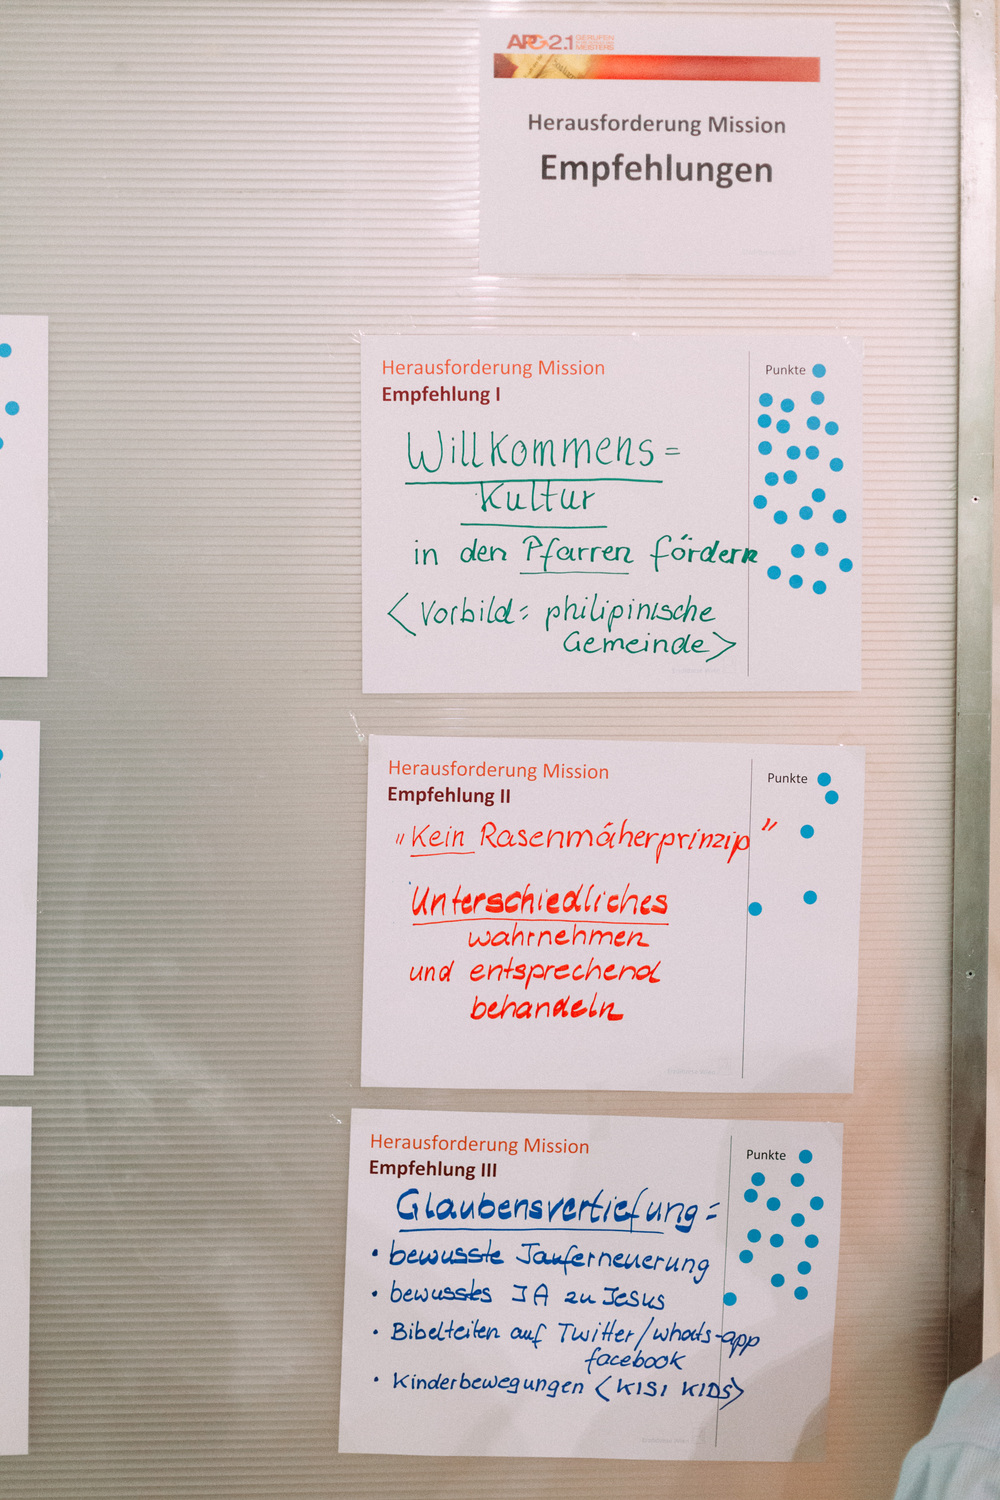 APG2.1 GERUFEN
MEISTERS
Herausforderung Mission
Empfehlungen
Herausforderung Mission
Empfehlung I
Punkte
Willkommens=
Kultur
in den Pfarren fördern
<Vorbild: philipinische
Gemeinde>
Herausforderung Mission
Empfehlung II
Punkte
"Kein Rasenmäherprinzip"
Unterschiedliches
wahrnehmen
und entsprechend
behandeln
Herausforderung Mission
Empfehlung III
Punkte
Glaubensvertiefung:
• bewusste Tauferneuerung
• bewusstes JA zu Jesus
• Bibelteilen auf Twitter/whats-app
facebook
• Kinderbewegungen <KISI KIDS>